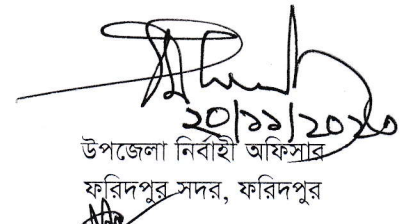 ২০/১১/২০২০
উপজেলা নির্বাহী অফিসার
ফরিদপুর সদর, ফরিদপুর